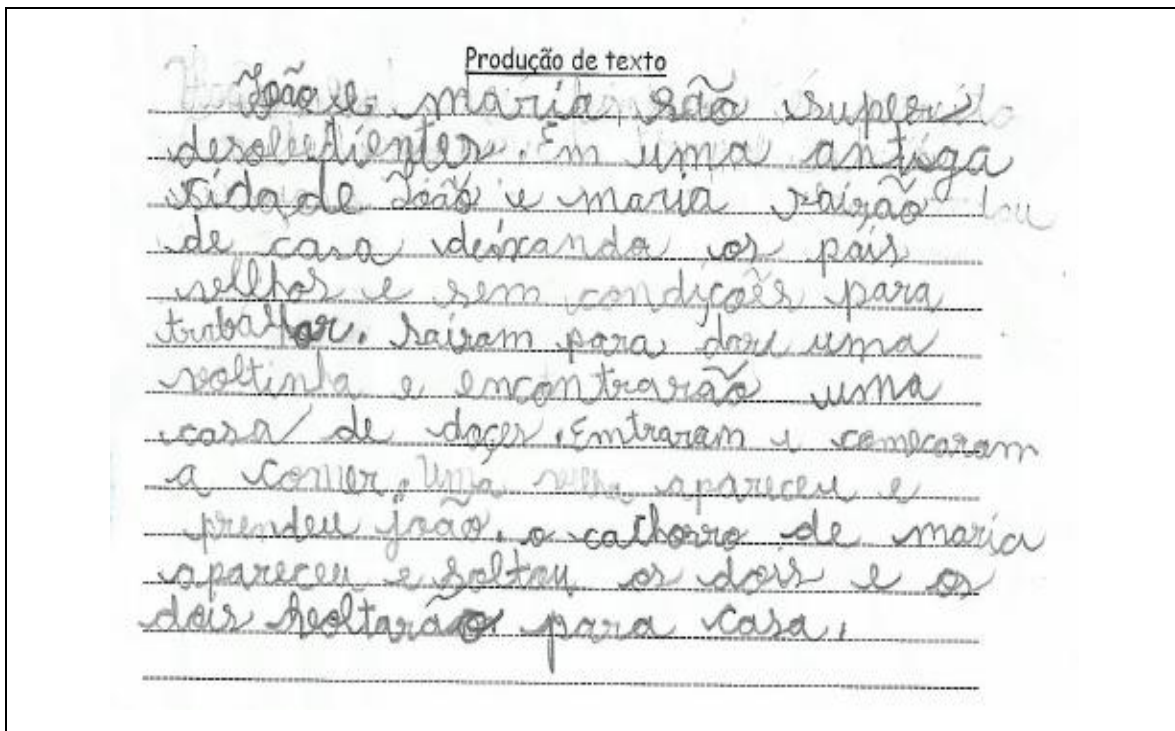 Produção de texto
João e maria são super
desobedientes. Em uma antiga
sidade João e maria sairão
de casa deixando os pais
velhos e sem condições para
trabalhar. Sairam para dar uma
voltinha e encontrarão uma
casa de doçes. Emtraram e começaram
a comer. Uma velha apareceu e
prendeu joão. o cachorro de maria
apareceu e soltou os dois e os
dois voltarão para casa.